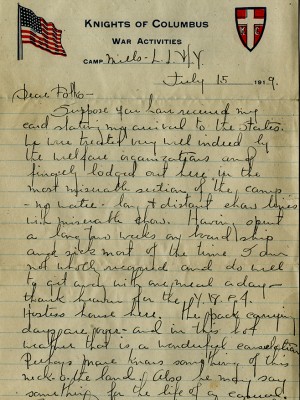 KNIGHTS OF COLUMBUS
WAR ACTIVITIES
CAMP Mills - L. I. N.Y.
July 15 1919.
Dear Folks -
Suppose you have received my
card stating my arrival to the States.
We were treated very well indeed by
the welfare organizations and
finely lodged out here in the
most miserable section of the camp
- no water - long & distant chow lines
with miserable chow. Having spent
a long two weeks on board ship
and sick most of the time I am
not wholly recovered and do well
to get away with one meal a day -
thank heaven for the Y.W.C.A.
Hostess house here. The pack carrying
days are over - and in this hot
weather that is a wonderful consolation
Perhaps knows something of this
neck o' the land. Also he may say
something for the life of a casual.